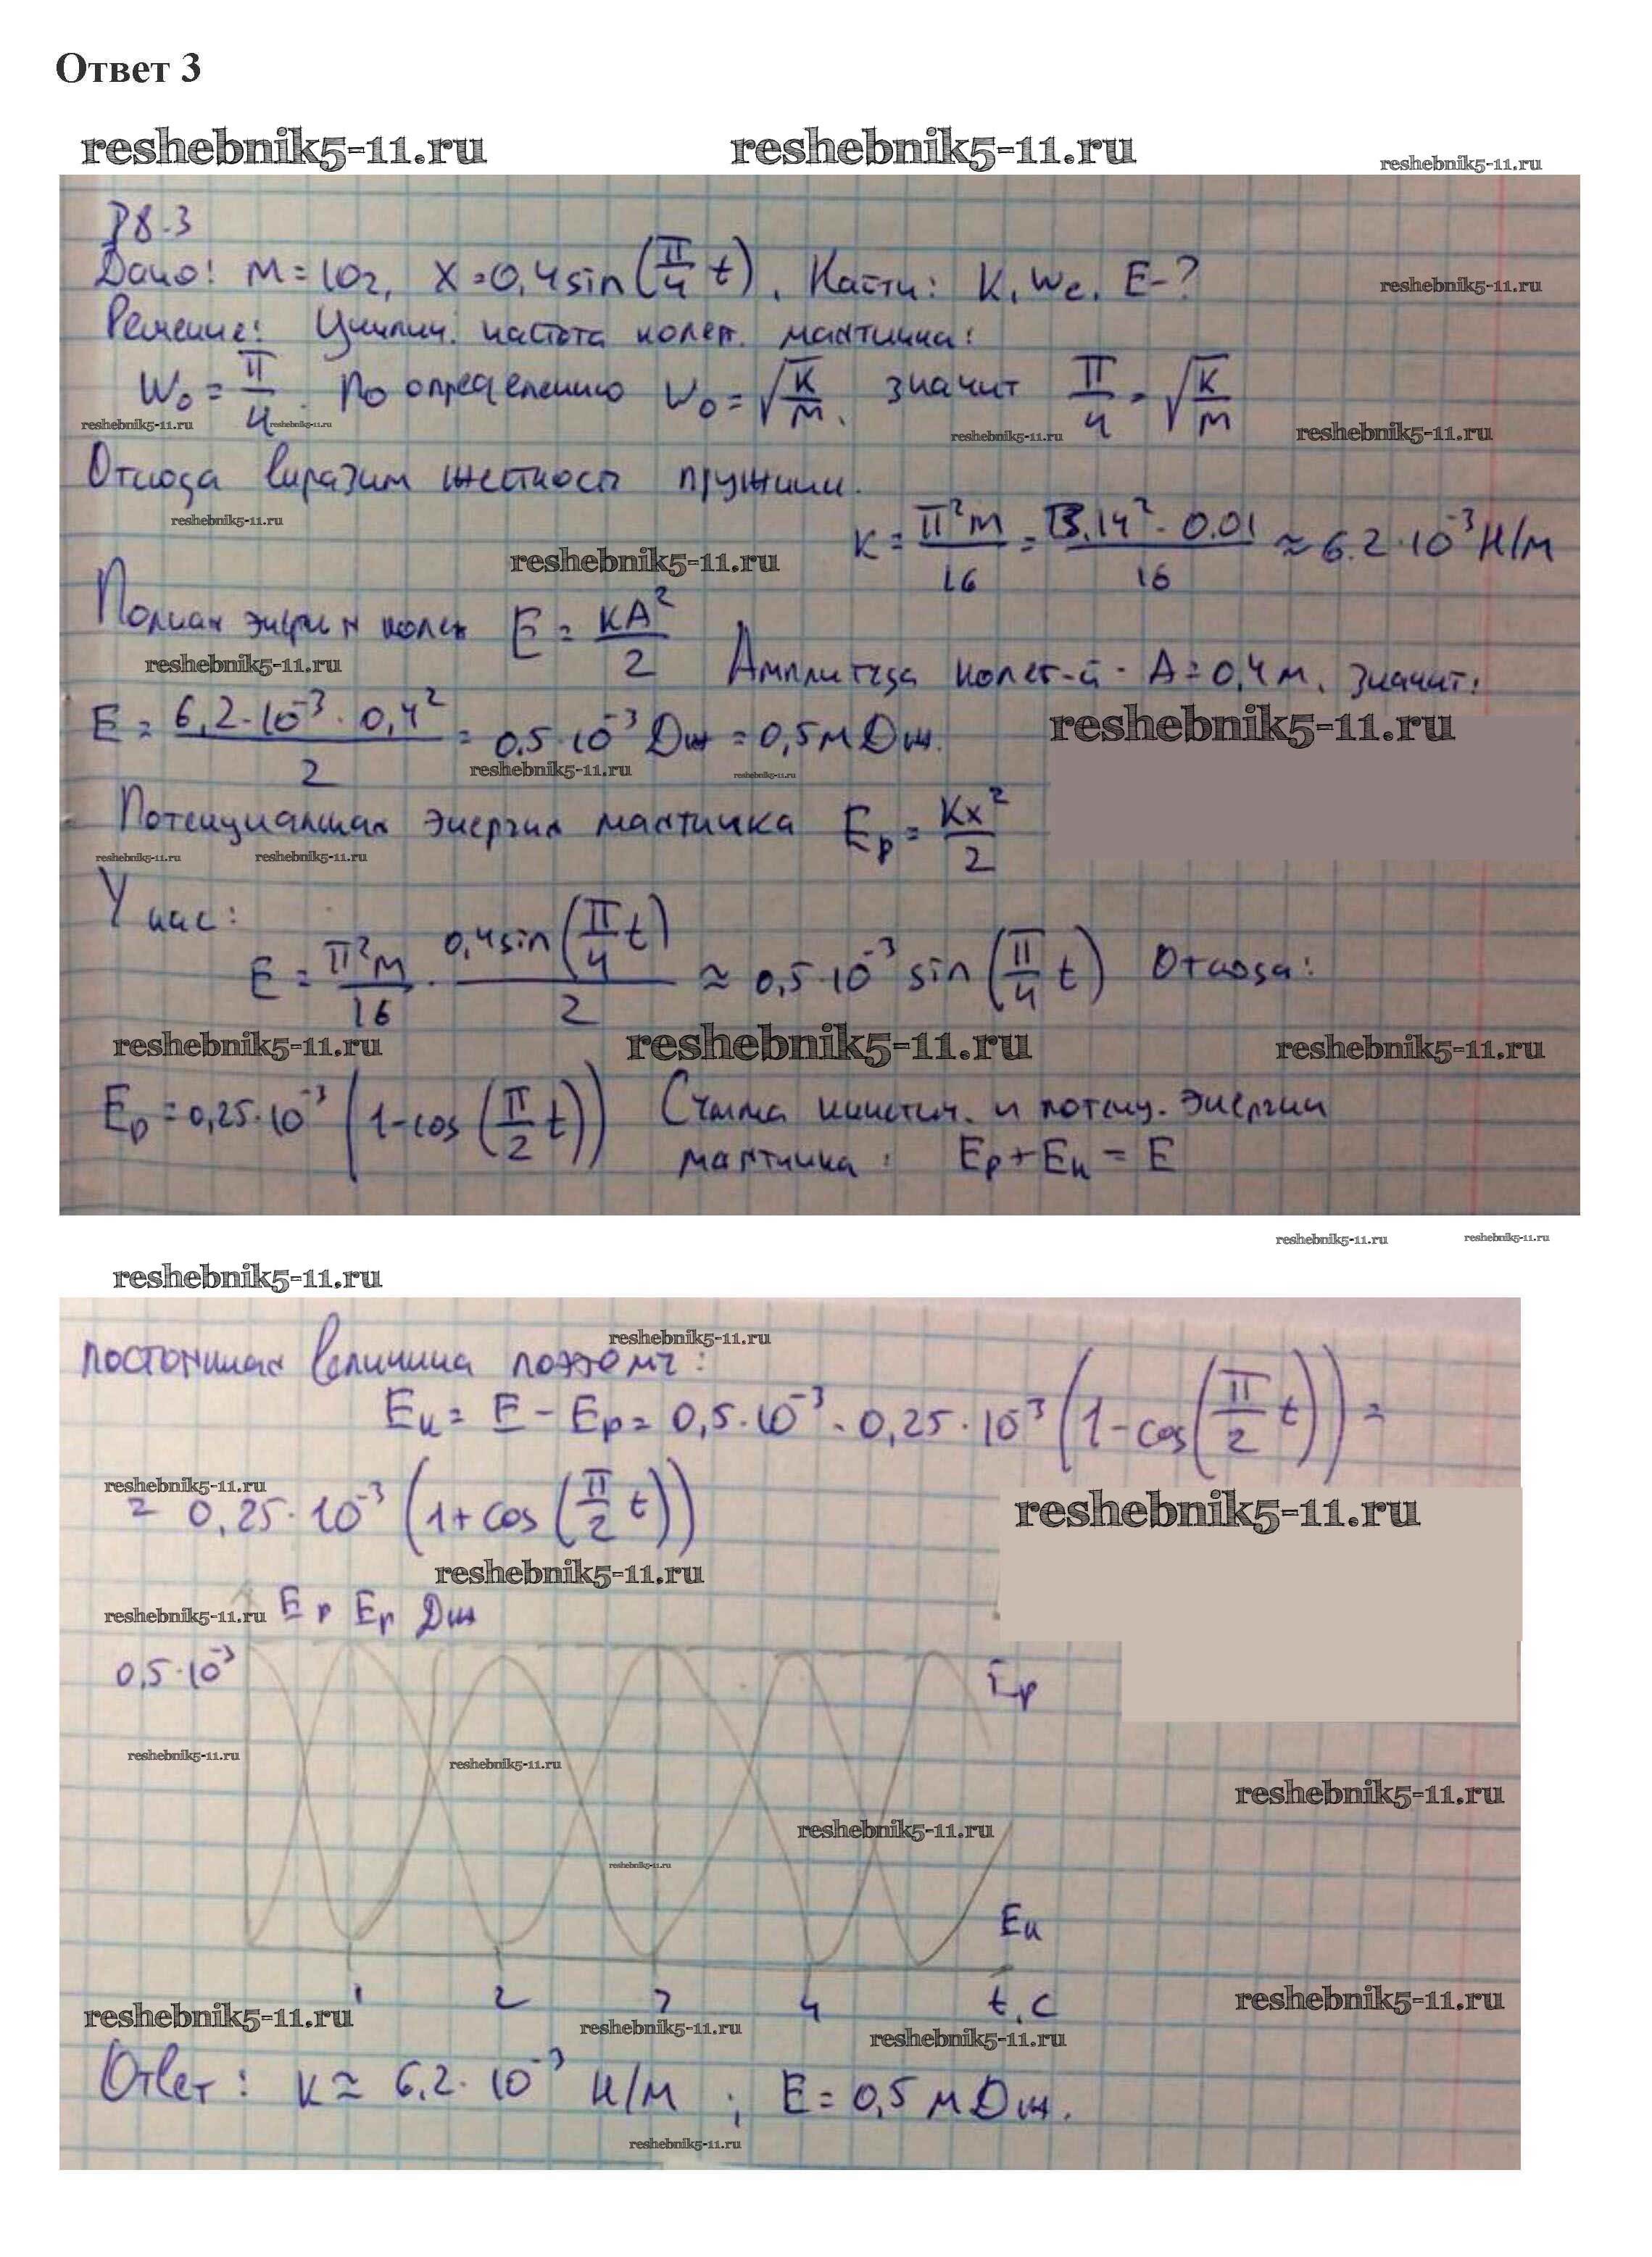 Ответ 3
reshebnik5-11.ru reshebnik5-11.ru reshebnik5-11.ru
P8.3
Дано: m=10г, x=0,4sin(π/4 t). Найти: K, We, E-?
reshebnik5-11.ru
Решение: Циклич. частота колеб. маятника:
W₀ = π/4. По определению W₀ = √(K/m), значит π/4 = √(K/m)
reshebnik5-11.ru reshebnik5-11.ru reshebnik5-11.ru reshebnik5-11.ru
Отсюда выразим жесткость пружины.
reshebnik5-11.ru
K = π²m/16 = 3,14²·0.01/16 ≈ 6.2·10⁻³ Н/м
reshebnik5-11.ru
Полная энергия колеб E = KA²/2
reshebnik5-11.ru
Амплитуда колеб-й - A=0,4м, значит:
E = 6,2·10⁻³·0,4²/2 = 0.5·10⁻³ Дж = 0,5 мДж.
reshebnik5-11.ru
reshebnik5-11.ru reshebnik5-11.ru
Потенциальная энергия маятника Eр = Kx²/2
reshebnik5-11.ru reshebnik5-11.ru
У нас:
E = π²m/16 · 0,4sin(π/4 t)/2 ≈ 0,5·10⁻³ sin(π/4 t) Отсюда:
reshebnik5-11.ru reshebnik5-11.ru reshebnik5-11.ru
Eр = 0,25·10⁻³(1-cos(π/2 t)) Сумма кинетич. и потенц. энергии
маятника: Eр+Eк = E
reshebnik5-11.ru reshebnik5-11.ru
reshebnik5-11.ru
reshebnik5-11.ru
постоянная величина поэтому:
Eк = E - Eр = 0,5·10⁻³ - 0,25·10⁻³(1-cos(π/2 t)) =
reshebnik5-11.ru
= 0,25·10⁻³(1+cos(π/2 t))
reshebnik5-11.ru
reshebnik5-11.ru
reshebnik5-11.ru Eр Eр Дж
0,5·10⁻³
Eр
reshebnik5-11.ru reshebnik5-11.ru
reshebnik5-11.ru
reshebnik5-11.ru
reshebnik5-11.ru
Eк
1 2 3 4 t,c
reshebnik5-11.ru reshebnik5-11.ru reshebnik5-11.ru reshebnik5-11.ru
Ответ: K ≈ 6,2·10⁻³ Н/м; E = 0,5 мДж.
reshebnik5-11.ru